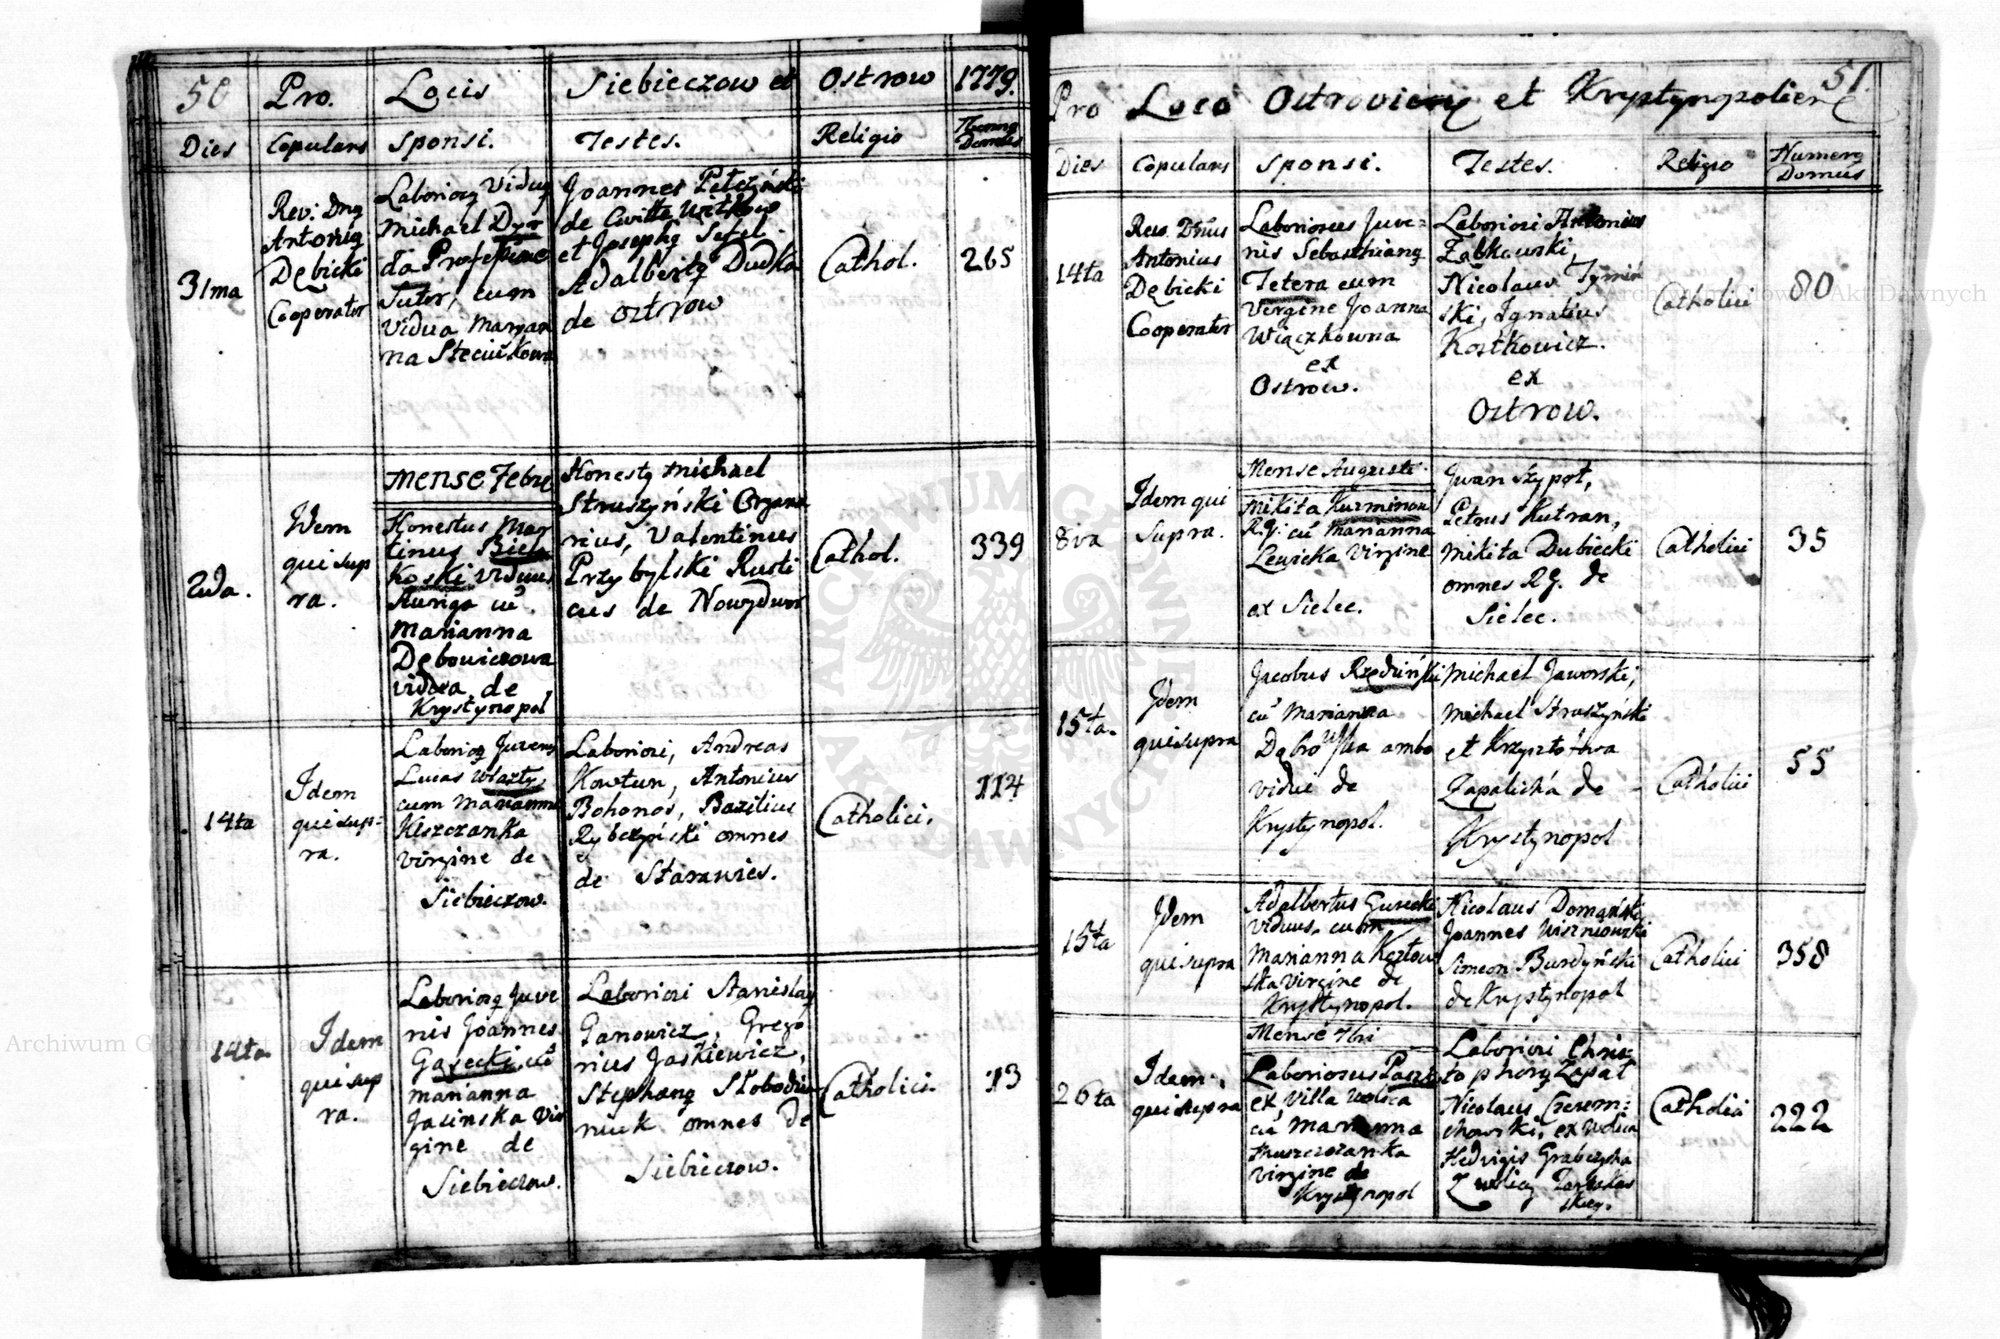 50 Pro. Locis Siebieczow et Ostrow 1779.
Dies Copulans Sponsi. Testes. Religio Numerus Domus
31ma
Rev: Dnq
Antoniq
Dębicki
Cooperator
Laboriosq Viduq
Michael Dyr
da Professione
Sutor, cum
vidua Maryan
na Steciukowa
Joannes Pełczyński
de Civitte Witkow
et Josephq Sefel
Adalbertq Dudka
de Ostrow
Cathol.
265
2da.
Idem
qui sup
ra.
Mense Febru
Honestus Mar
tinus Biela
koski viduus
Auriga cu
Marianna
Dębowiczowa
vidua de
Krystynopol
Honestq Michael
Struszyński Organa
rius, Valentinus
Przybylski Rusti
cus de Nowydwor
Cathol.
339
14ta
Idem
qui sup-
ra.
Laboriosq Juvenis
Lucas Własty,
cum Marianna
Kiszczanka
virgine de
Siebieczow.
Laboriosi, Andreas
Kowtun, Antonius
Bohonos, Bazilius
Rybczyński omnes
de Starawies.
Catholici.
114
14ta
Idem
qui sup
ra.
Laboriosq Juve
nis Joannes
Gasecki, cu
Marianna
Jasinska Vir
gine de
Siebieczow.
Laboriosi Stanislaq
Ganowicz, Grego
rius Jaskiewicz,
Stephanq Słobodia
niuk omnes de
Siebieczow.
Catholici.
13
51.
Pro Loco Ostrovien et Krystynopolien
Dies Copulans Sponsi. Testes. Religio Numerq Domus
14ta
Rev. Dnus
Antonius
Dębicki
Cooperator
Laboriosus Juve-
nis Sebasthianq
Tetera cum
Virgine Joanna
Wiączkowna
ex
Ostrow.
Laboriosi Antonius
Ząbkowski,
Nicolaus Tymiń
ski, Ignatius
Kostkowicz.
ex
Ostrow.
Catholici
80
8va
Idem qui
Supra.
Mense Augusti
Mikita Kuzminau
RG. cu Marianna
Lewicka Virgine
ex Sielec.
Jwan Szypot,
Petrus Kutran,
Mikita Dubiecki
omnes RG. de
Sielec.
Catholici
35
15ta.
Idem
qui supra
Jacobus Rzędziński
cu Marianna
Dąbrowska ambo
vidui de
Krystynopol.
Michael Jaworski,
Michael Struszyński
et Krzysztofowa
Zapalická de
Krystynopol
Catholici
55
15ta
Idem
qui supra
Adalbertus Gurecki
viduus, cum
Marianna Kozłow
ska Virgine de
Krystynopol.
Nicolaus Domański
Joannes Wiszniowski
Simeon Burdyński
de Krystynopol
Catholici
358
26ta
Idem
qui supra
Mense 7bri
Laboriosus Paszk
ex Villa Wolica
cu Marianna
virgine de
Krystynopol
Laboriosi Chris-
tophorq Zapał
Nicolaus Czerem-
chowski, ex Wolica
Hedvigis Grabczyska
Catholici
222